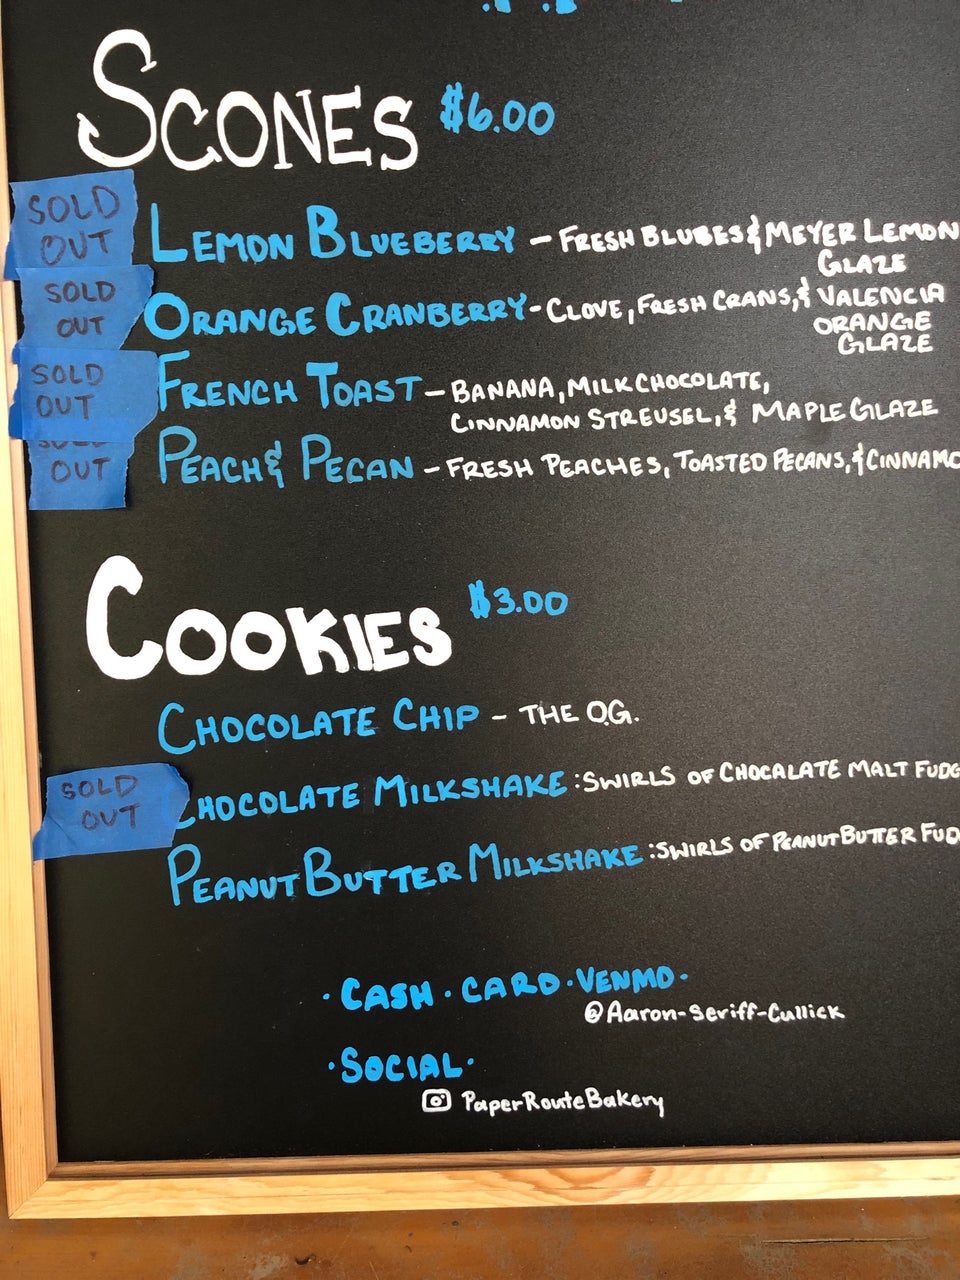 SCONES $6.00
SOLD OUT LEMON BLUEBERRY - FRESH BLUBES & MEYER LEMON
GLAZE
SOLD OUT ORANGE CRANBERRY - CLOVE, FRESH CRANS, & VALENCIA
ORANGE
GLAZE
SOLD OUT FRENCH TOAST - BANANA, MILK CHOCOLATE,
CINNAMON STREUSEL, & MAPLE GLAZE
SOLD OUT PEACH & PECAN - FRESH PEACHES, TOASTED PECANS, & CINNAMO
COOKIES $3.00
CHOCOLATE CHIP - THE O.G.
SOLD OUT CHOCOLATE MILKSHAKE: SWIRLS OF CHOCALATE MALT FUDG
PEANUT BUTTER MILKSHAKE: SWIRLS OF PEANUT BUTTER FUD
· CASH · CARD · VENMO ·
@Aaron-Seriff-Cullick
· SOCIAL ·
PaperRouteBakery